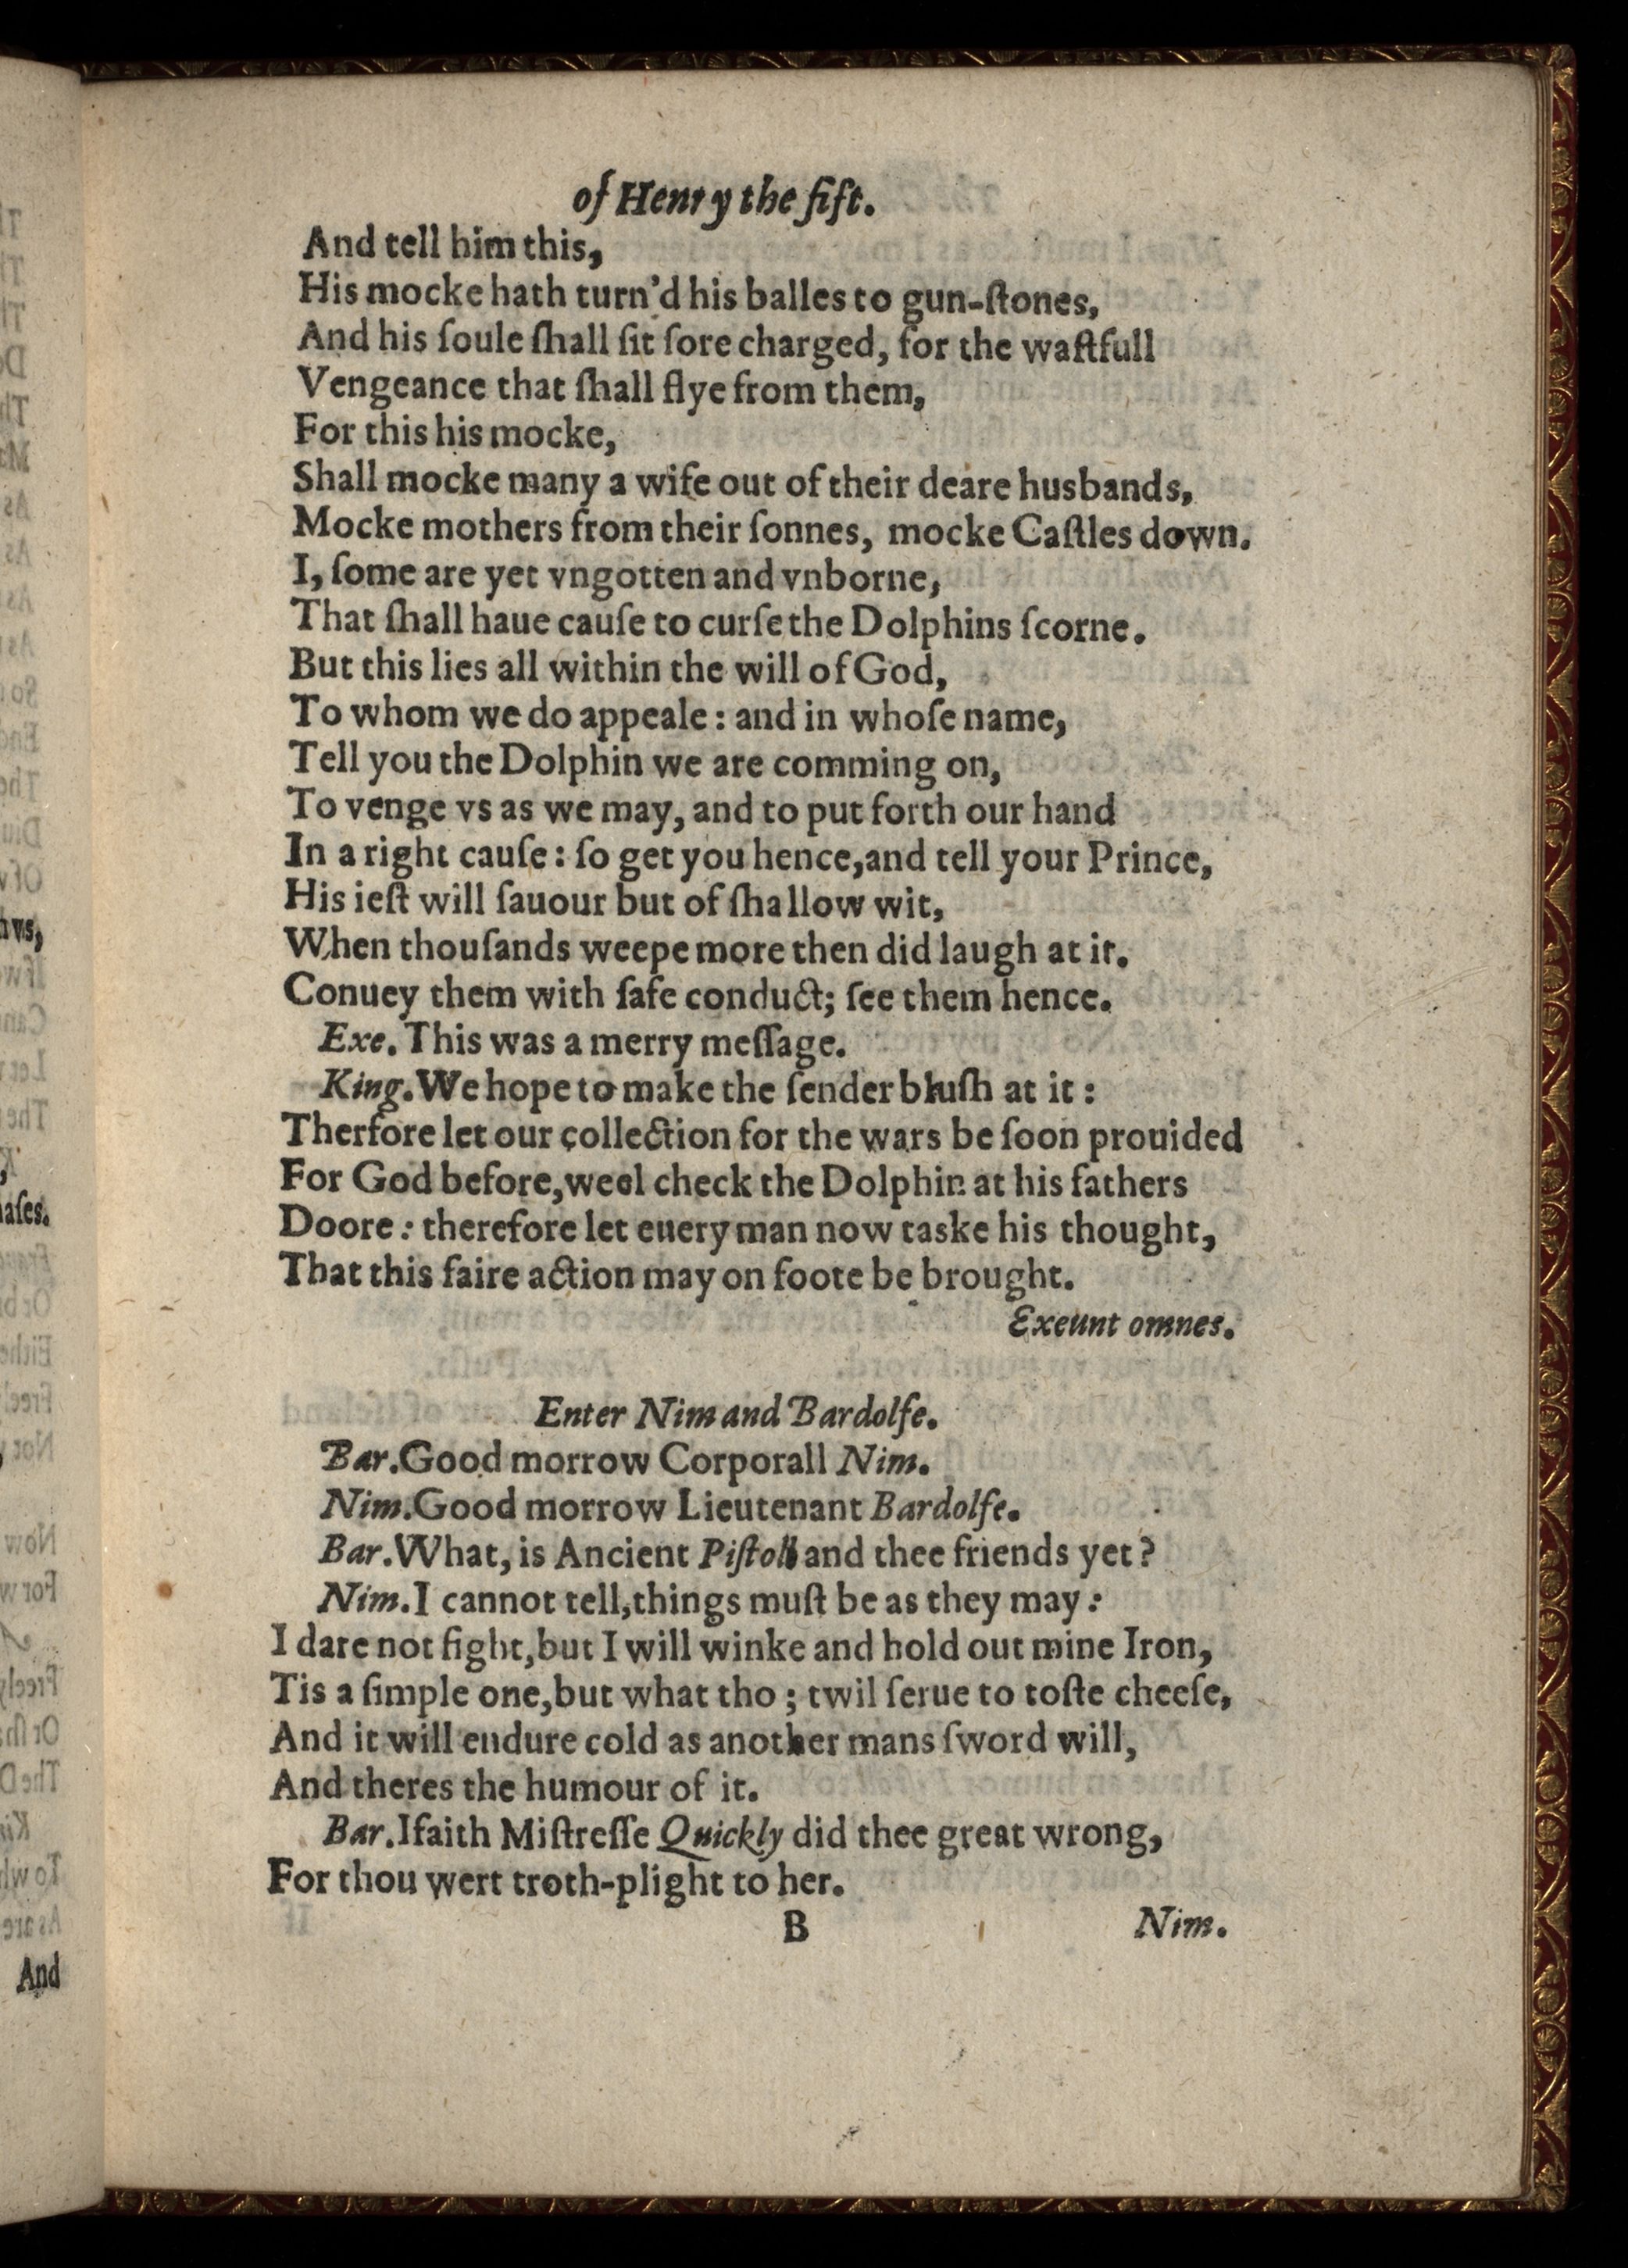 of Henry the fift.
And tell him this,
His mocke hath turn'd his balles to gun-ſtones,
And his ſoule ſhall ſit ſore charged, for the waſtfull
Vengeance that ſhall flye from them,
For this his mocke,
Shall mocke many a wife out of their deare husbands,
Mocke mothers from their ſonnes, mocke Caſtles down.
I, ſome are yet vngotten and vnborne,
That ſhall haue cauſe to curſe the Dolphins ſcorne.
But this lies all within the will of God,
To whom we do appeale: and in whoſe name,
Tell you the Dolphin we are comming on,
To venge vs as we may, and to put forth our hand
In a right cauſe: ſo get you hence,and tell your Prince,
His ieſt will ſauour but of ſhallow wit,
When thouſands weepe more then did laugh at it.
Conuey them with ſafe conduct; ſee them hence.
Exe. This was a merry meſſage.
King. We hope to make the ſender bluſh at it:
Therfore let our collection for the wars be ſoon prouided
For God before,weel check the Dolphin at his fathers
Doore: therefore let euery man now taske his thought,
That this faire action may on foote be brought.
Exeunt omnes.
Enter Nim and Bardolfe.
Bar. Good morrow Corporall Nim.
Nim. Good morrow Lieutenant Bardolfe.
Bar. What, is Ancient Piſtoll and thee friends yet?
Nim. I cannot tell,things muſt be as they may:
I dare not fight,but I will winke and hold out mine Iron,
Tis a ſimple one,but what tho; twil ſerue to toſte cheeſe,
And it will endure cold as another mans ſword will,
And theres the humour of it.
Bar. Ifaith Miſtreſſe Quickly did thee great wrong,
For thou wert troth-plight to her.
B Nim.
vs,
aſes.
And